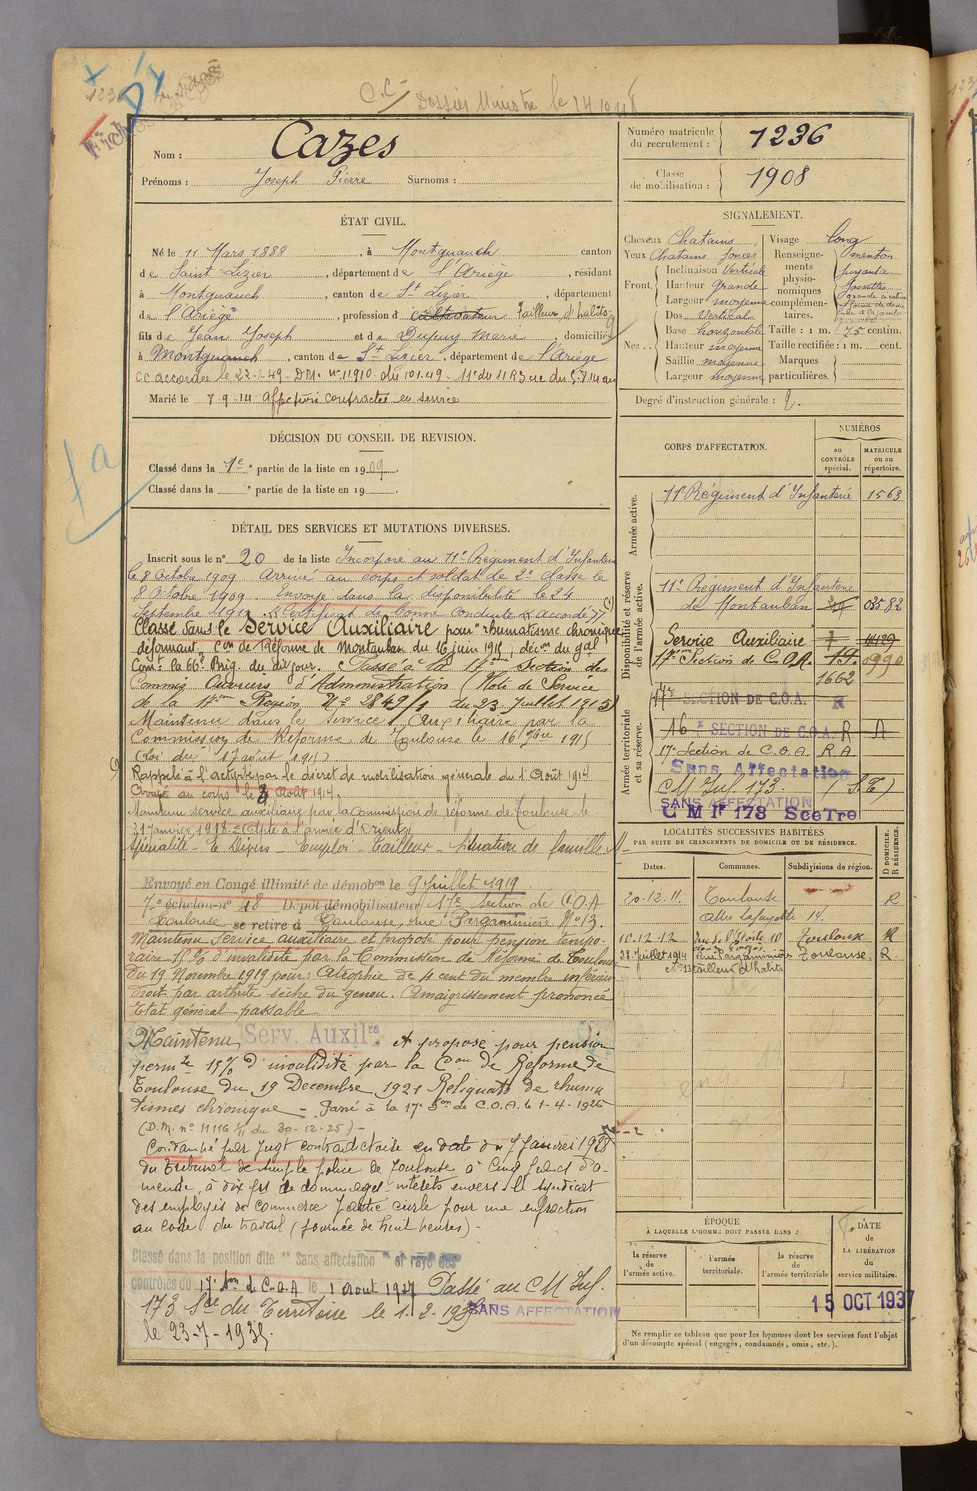 C.C.
Dossier Ministre le 14.10.48
Nom : Cazes
Prénoms : Joseph Pierre Surnoms :
Numéro matricule du recrutement : 1236
Classe de mobilisation : 1908
ÉTAT CIVIL.
Né le 11 Mars 1888, à Montgauch canton
de Saint Lizier, département de l'Ariège, résidant
à Montgauch, canton de St Lizier, département
de l'Ariège, profession de cultivateur Tailleur d'habits
fils de Jean Joseph et de Dupuy Marie domiciliés
à Montgauch, canton de St Lizier, département de l'Ariège
CC accordée le 22-2-49 - DM. n° 11910 du 10.1.49 -
Marié le 7-9-14 affection contractée en service
SIGNALEMENT.
Cheveux Chatains
Yeux Chatains foncés
Front. Inclinaison Verticale
Hauteur Grande
Largeur moyenne
Nez. Dos Vertical
Base horizontale
Hauteur moyenne
Saillie moyenne
Largeur moyenne
Visage long
Renseignements physionomiques complémentaires. menton
fossettes
Taille : 1 m. 75 centim.
Taille rectifiée : 1 m. cent.
Marques particulières.
Degré d'instruction générale : 2.
DÉCISION DU CONSEIL DE REVISION.
Classé dans la 1e partie de la liste en 1909.
Classé dans la " partie de la liste en 19 .
DÉTAIL DES SERVICES ET MUTATIONS DIVERSES.
Inscrit sous le n° 20 de la liste Incorporé au 11e Régiment d'Infanterie
le 8 Octobre 1909. Arrivé au corps et soldat de 2e classe le
8 Octobre 1909. Envoyé dans la disponibilité le 24
Septembre 1911. "Certificat de bonne Conduite" accordé
Classé dans le Service Auxiliaire pour "rhumatisme chronique
déformant" Con de Réforme de Montauban du 16 juin 1913 ; décon du gal
Comt la 66e Brig. du dit jour. Passé à la 17eme Section des
Commis Ouvriers d'Administration (Note de Service
de la 17eme Région N° 2849/1 du 23 Juillet 1913)
Maintenu dans le service Auxiliaire par la
Commission de Réforme de Toulouse le 16 9bre 1915
(Loi du 17 août 1915)
Rappelé à l'activité par le décret de mobilisation générale du 1er Août 1914
Arrivé au corps le 3 Août 1914.
Maintenu service auxiliaire par la Commission de réforme de Toulouse le
31 Janvier 1918.
Spécialité - Emploi - Tailleur - Situation de famille M -
Envoyé en Congé illimité de démobon le 9 Juillet 1919
7e échelon n° 18 Dépôt démobilisateur 17e Section de C.O.A
Toulouse se retire à Toulouse, rue Pargaminières N° 13.
Maintenu Service auxiliaire et proposé pour pension tempo-
raire 15% d'invalidité par la Commission de Réforme de Toulouse
du 19 Novembre 1919 pour : Atrophie de 4 cent du membre inférieur
droit par arthrite sèche du genou. Amaigrissement prononcé
Etat général passable
Maintenu Serv. Auxilre et proposé pour pension
permte 15% d'invalidité par la Con de Réforme de
Toulouse du 19 Decembre 1921 Reliquats de rhuma
tismes chronique - Passé à la 17e Son de C.O.A. le 1-4-1926
(D.M. n° 11116 1/11 du 30-12-25) -
Condamné par Jugt contradictoire en date du 7 Janvier 1928
du Tribunal de simple police de Toulouse à Cinq francs d'a-
mende, à dix frs de dommages-intérêts envers le syndicat
des employés de commerce partie civile pour une infraction
au code du travail (journée de huit heures) -
Classé dans la position dite "Sans affectation" et rayé des
contrôles du 17e Son de C.O.A le 1 Aout 1927 Passé au C M Inf.
173 Sce du Territoire le 1.2.1935 SANS AFFECTATION
le 23-7-1935.
CORPS D'AFFECTATION.
NUMÉROS
au CONTRÔLE spécial.
MATRICULE ou au répertoire.
Armée active.
11e Régiment d'Infanterie 1563
Disponibilité et réserve de l'armée active.
11e Régiment d'Infanterie
de Montauban 03582
Service Auxiliaire
17e Section de C.O.A. 0990
1662
Armée territoriale et sa réserve.
17e SECTION DE C.O.A. R
16e SECTION DE C.O.A. R A
17e Section de C.O.A. R.A
Sans Affectation
C M Inf. 173. (S.T)
SANS AFFECTATION
C M Ir 173 SceTre
LOCALITÉS SUCCESSIVES HABITÉES
PAR SUITE DE CHANGEMENTS DE DOMICILE OU DE RÉSIDENCE.
Dates. Communes. Subdivisions de région. D DOMICILE. R RÉSIDENCE.
20.12.11. Toulouse R
allée Lafayette 14.
10.12.12 Rue de l'Etoile 10 Toulouse R
28 Juillet 1914 Rue Pargaminières Toulouse. R.
N° 13 tailleur d'habits
ÉPOQUE
À LAQUELLE L'HOMME DOIT PASSER DANS :
la réserve de l'armée active.
l'armée territoriale.
la réserve de l'armée territoriale
DATE DE LA LIBÉRATION du service militaire.
15 OCT 1937
Ne remplir ce tableau que pour les hommes dont les services font l'objet
d'un décompte spécial (engagés, condamnés, omis, etc.).